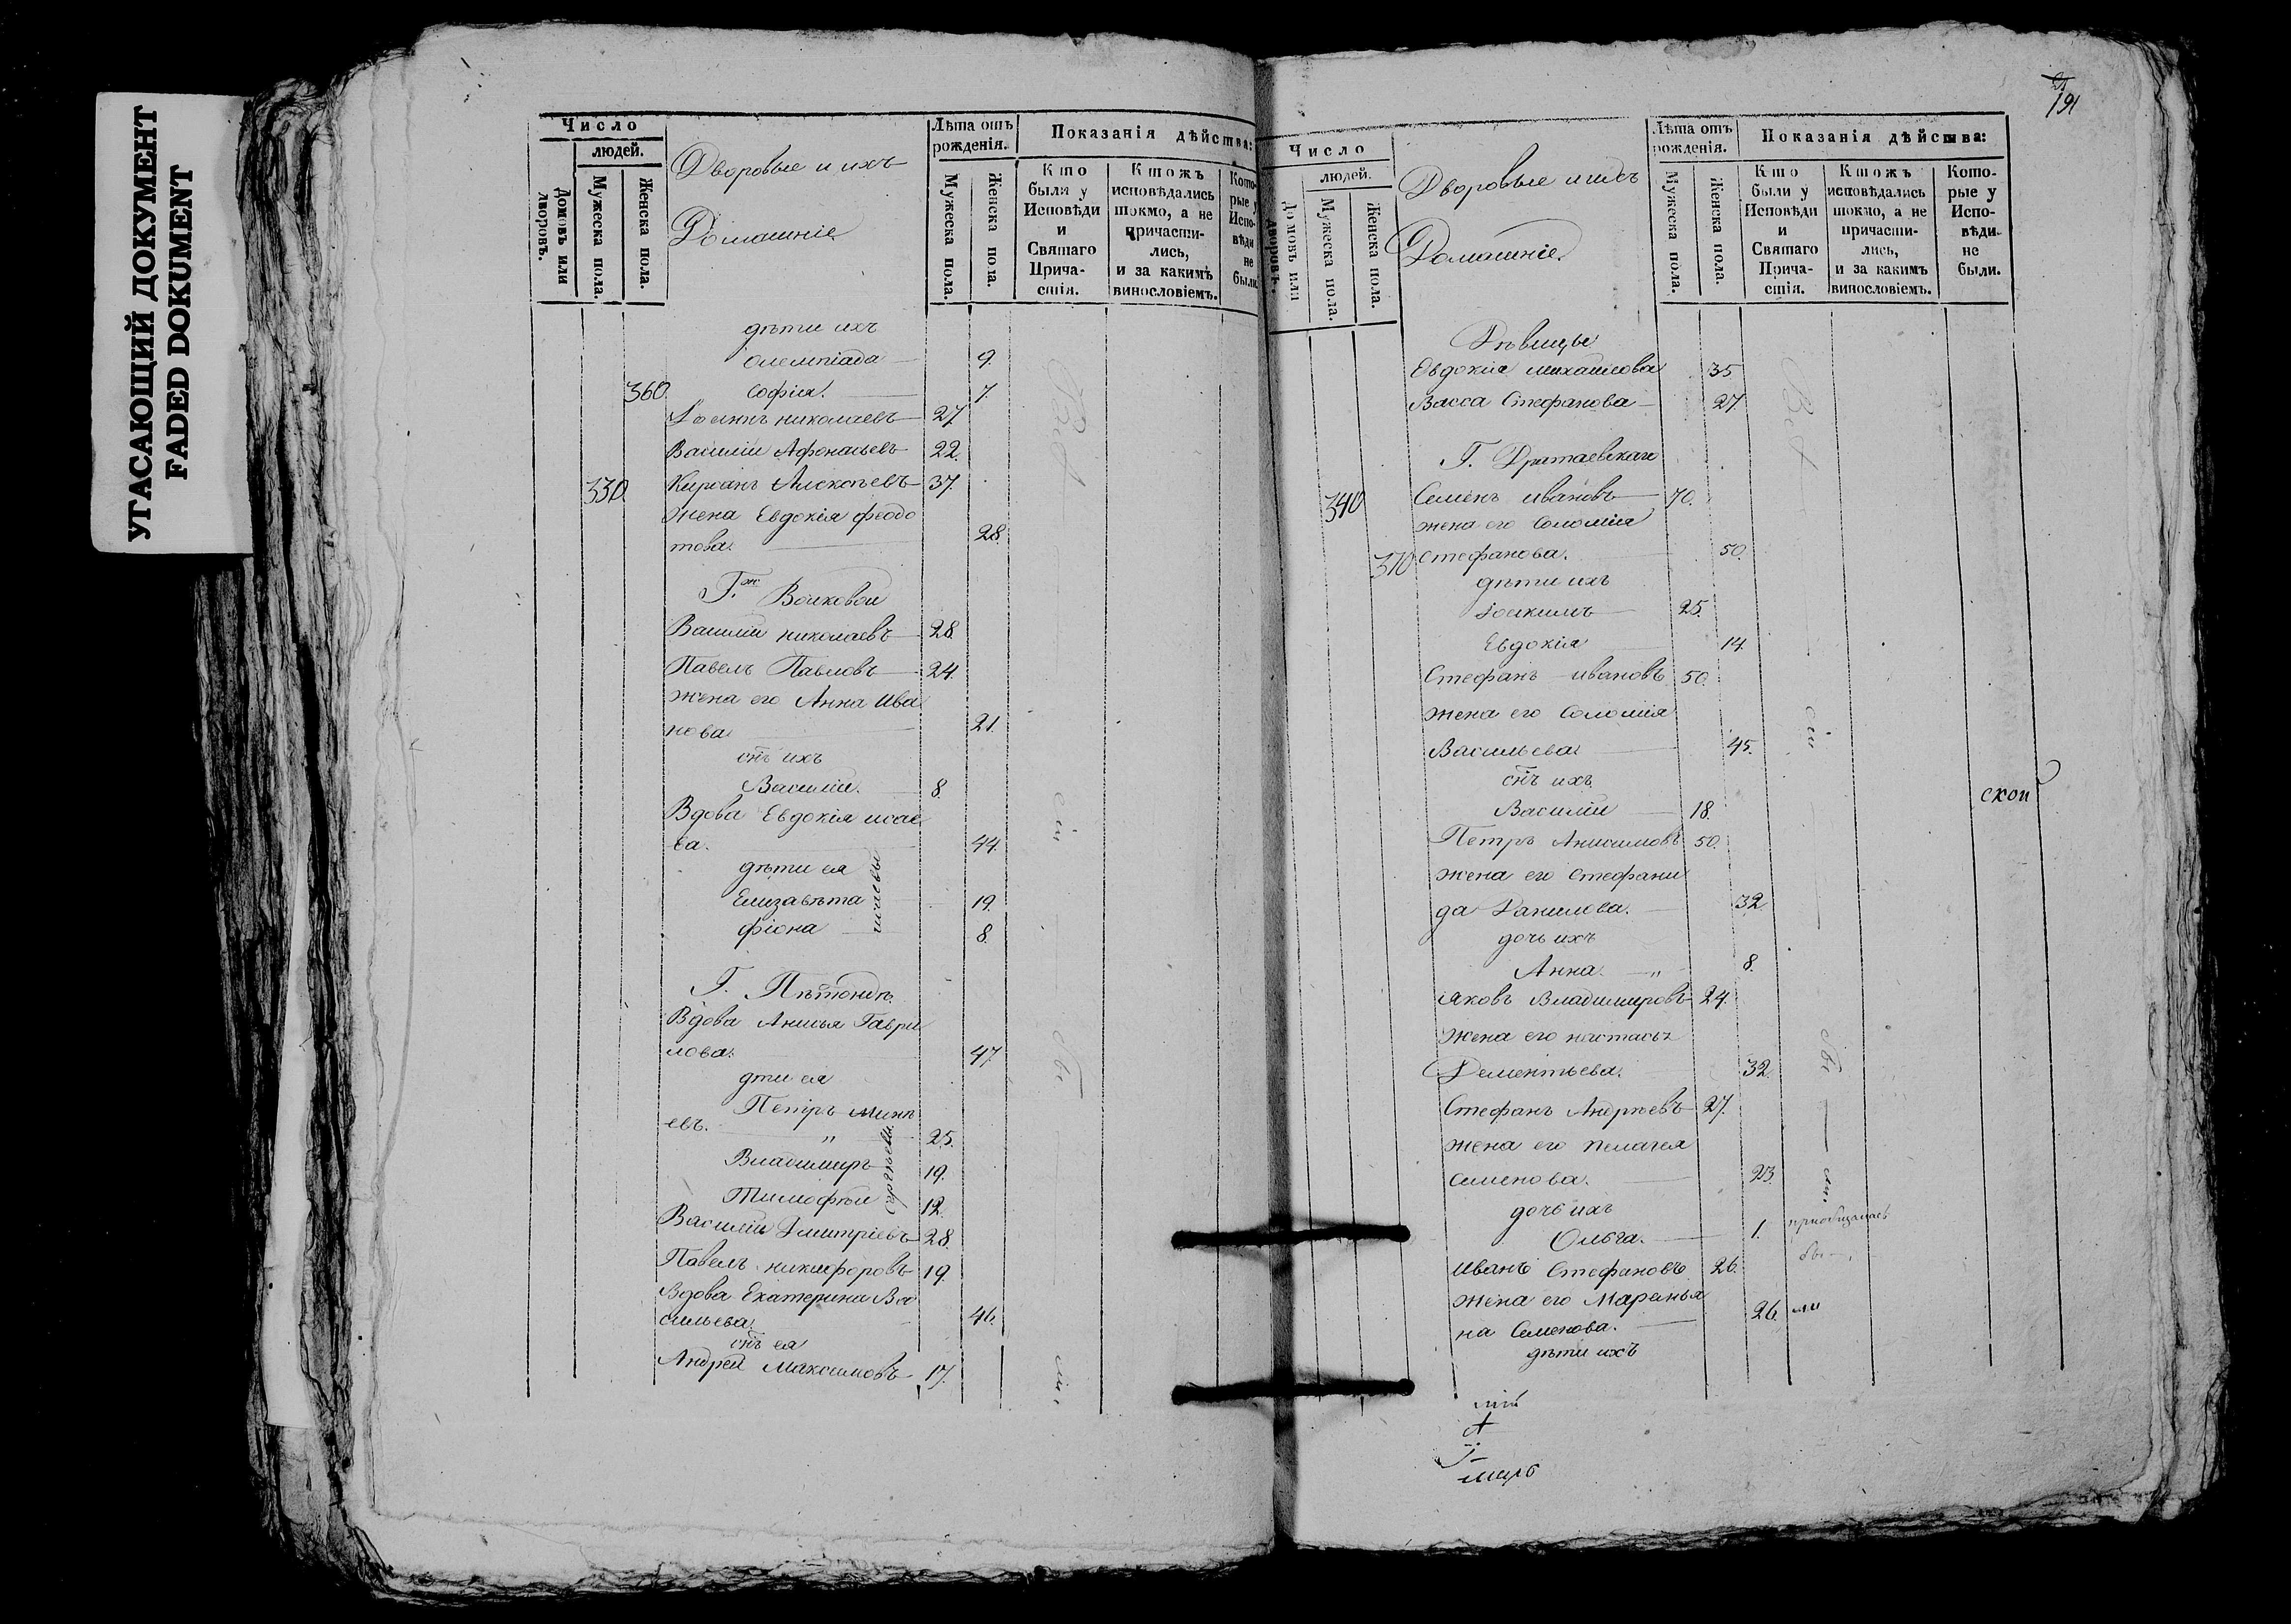 УГАСАЮЩИЙ ДОКУМЕНТ
FADED DOKUMENT
Число
людей.
Домовъ или дворовъ.
Мужеска пола.
Женска пола.
Дворовые и ихъ
Домашніе.
Лѣта отъ рожденія.
Мужеска пола.
Женска пола.
Показанія дѣйства:
Кто были у Исповѣди и Святаго Прича-стія.
Ктожъ исповѣдались токмо, а не причасти-лись, и за какимъ винословіемъ.
Кото-рые у Испо-вѣди не были
дѣти ихъ
Олемпіада 9.
360 Софія. 7.
Іоаннъ Николаевъ 27.
Василіи Афонасьевъ 22.
330. Кирианъ Алексѣевъ 37.
жена Евдокія Феодо
това. 28.
Г.жи Волковои
Василіи Николаевъ 28
Павелъ Павловъ 24.
жена его Анна Ива
нова 21.
снъ ихъ
Василіи. 8.
Вдова Евдокія Исае
ва. 44.
дѣти ея
Елизавѣта 19.
Фіона 8.
Исаевы
Г.
Вдова Анисья Гаври
лова. 47
дти ея
Петръ Минѣ
евъ. " 25.
Владимиръ 19.
Тимофѣи 12.
Сергѣевы.
Василіи Дмитріевъ 28.
Павелъ Никифоровъ 19.
Вдова Екатерина Ва
сильева. 46.
снъ ея
Андрей Максимовъ 17.
191
Число
людей.
Домовъ или дворовъ.
Мужеска пола.
Женска пола.
Дворовые и ихъ
Домашніе.
Лѣта отъ рожденія.
Мужеска пола.
Женска пола.
Показанія дѣйства:
Кто были у Исповѣди и Святаго Прича-стія.
Ктожъ исповѣдались токмо, а не причасти-лись, и за какимъ винословіемъ.
Кото-рые у Испо-вѣди не были.
Дѣвицы
Евдокія Михаилова 35
Васса Стефанова 27.
Г. Дратаевскаго
340 Семенъ Ивановъ 70.
жена его Соломія
370 Стефанова. 50.
дѣти ихъ
Іоакимъ 25.
Евдокія 14.
Стефанъ Ивановъ 50.
жена его Соломія
Васильева 45.
снъ ихъ
Василіи 18.
Петръ Анисимовъ 50.
жена его Стефани
да Данилова. 32
дочь ихъ
Анна. " 8.
Яковъ Владимировъ 24.
жена его Настасья
Дементьева. 32.
Стефанъ Андреевъ 27.
жена его Пелагея
Семенова. 23.
дочь ихъ
Ольга. 1. приобщалась
Иванъ Стефановъ 26. бы
жена его Маремья
на Семенова. 26. ли
дѣти ихъ
ской